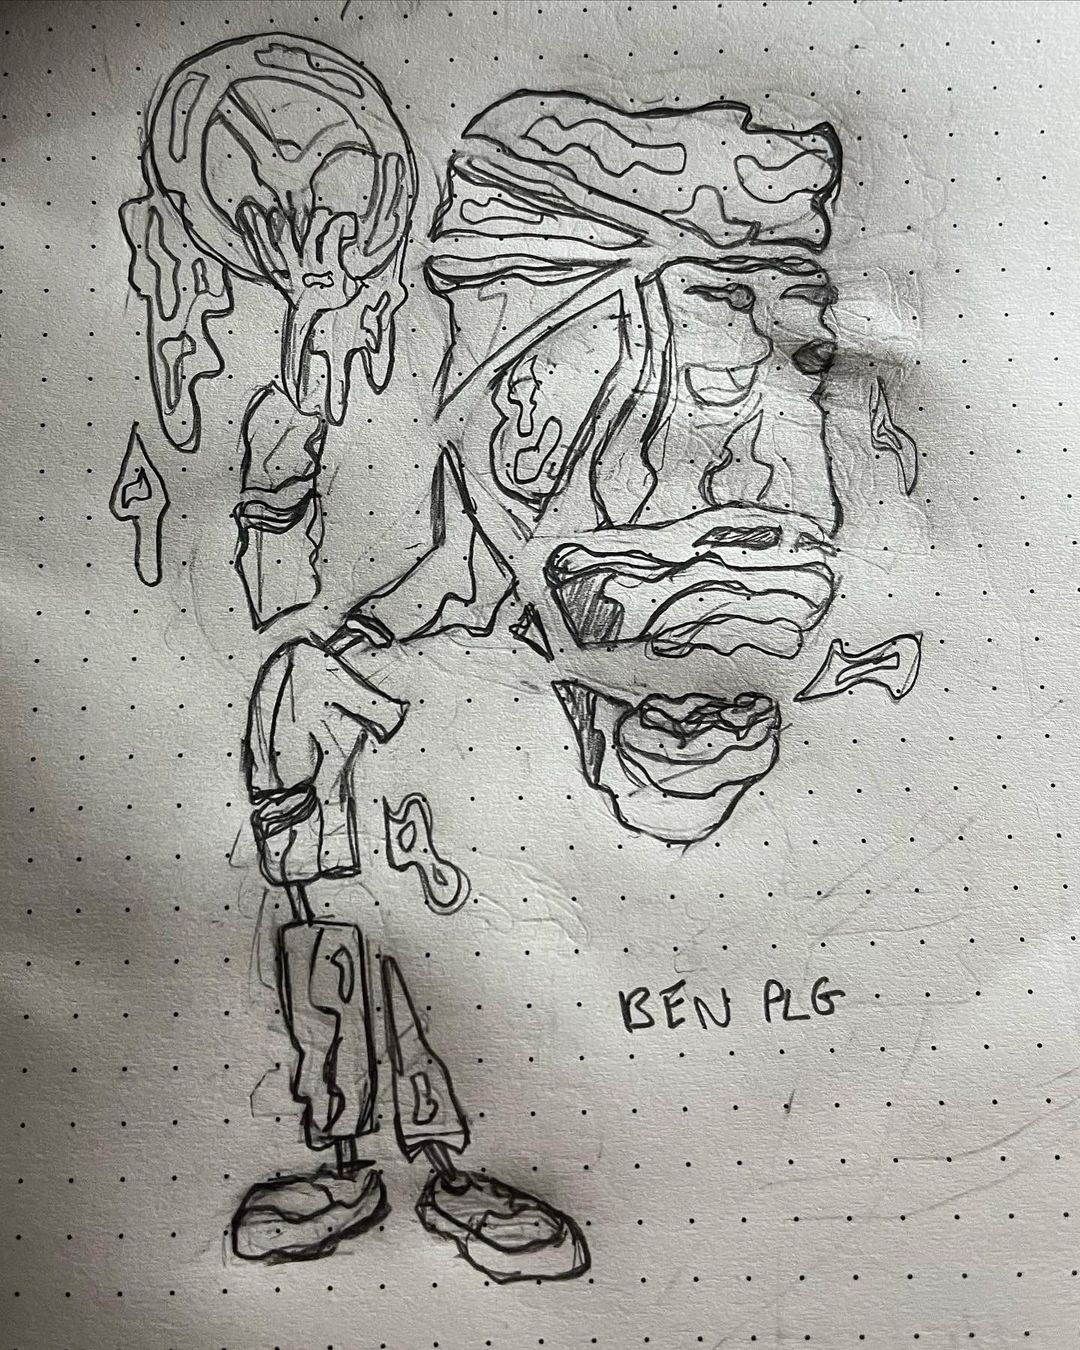 BEN PLG